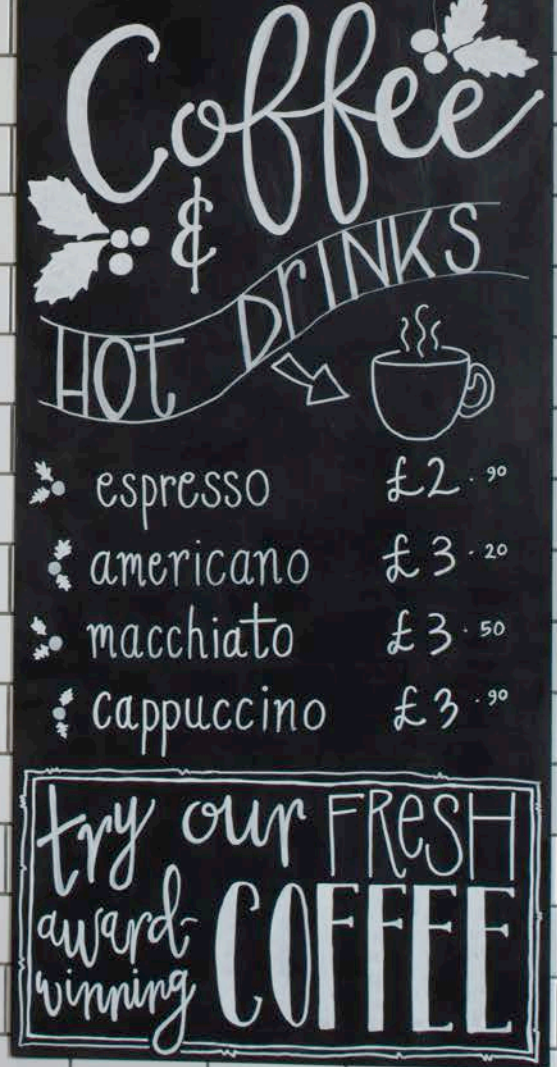 Coffee
&
HOT DrINKS
espresso £2.90
americano £3.20
macchiato £3.50
cappuccino £3.90
try our FReSH
award-
winning COFFEE